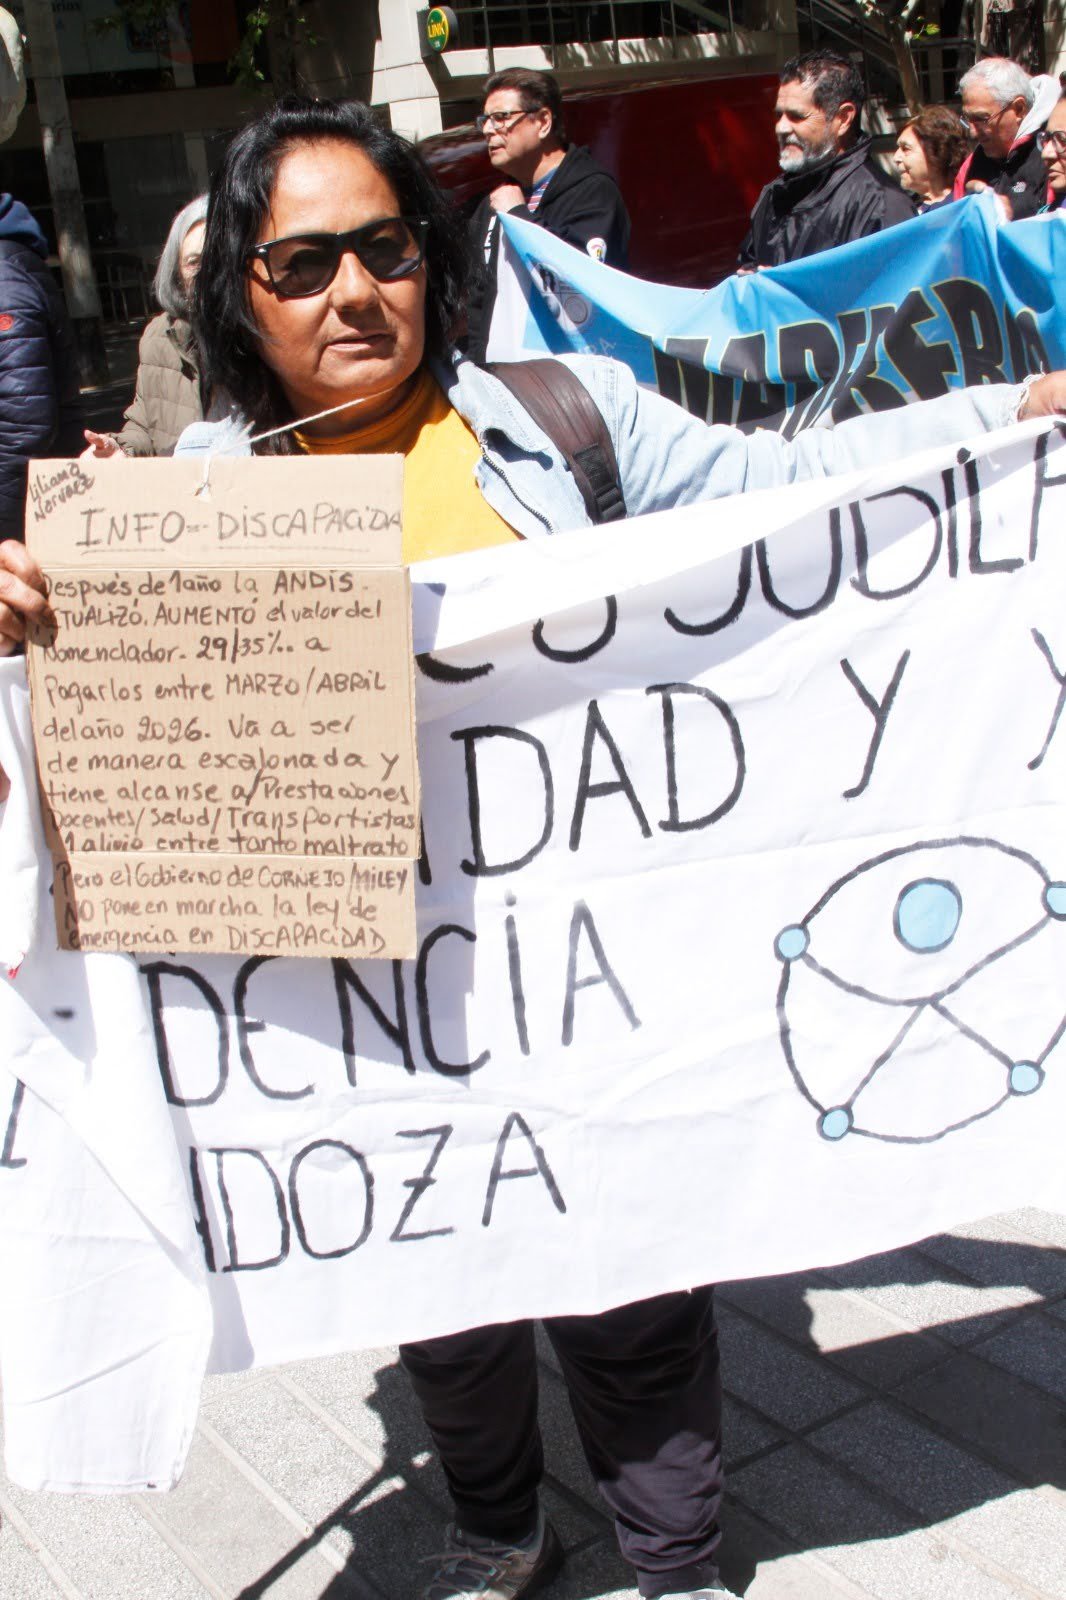 LINK
Liliana
Narvaez
INFO=-DISCAPACIDA
Después de 1año la ANDIS.
CTUALIZÓ. AUMENTÓ el valor del
Nomenclador. 29/35%.. a
Pagarlos entre MARZO/ABRIL
del año 2026. Va a ser
de manera escalonada y
tiene alcanse a/Prestaciones
Docentes/Salud/Transportistas
1 alivio entre tanto maltrato
Pero el Gobierno de CORNEJO/MILEY
NO pone en marcha la ley de
emergencia en DISCAPACIDAD
JUBILA
IDAD Y Y
DENCIA
NDOZA